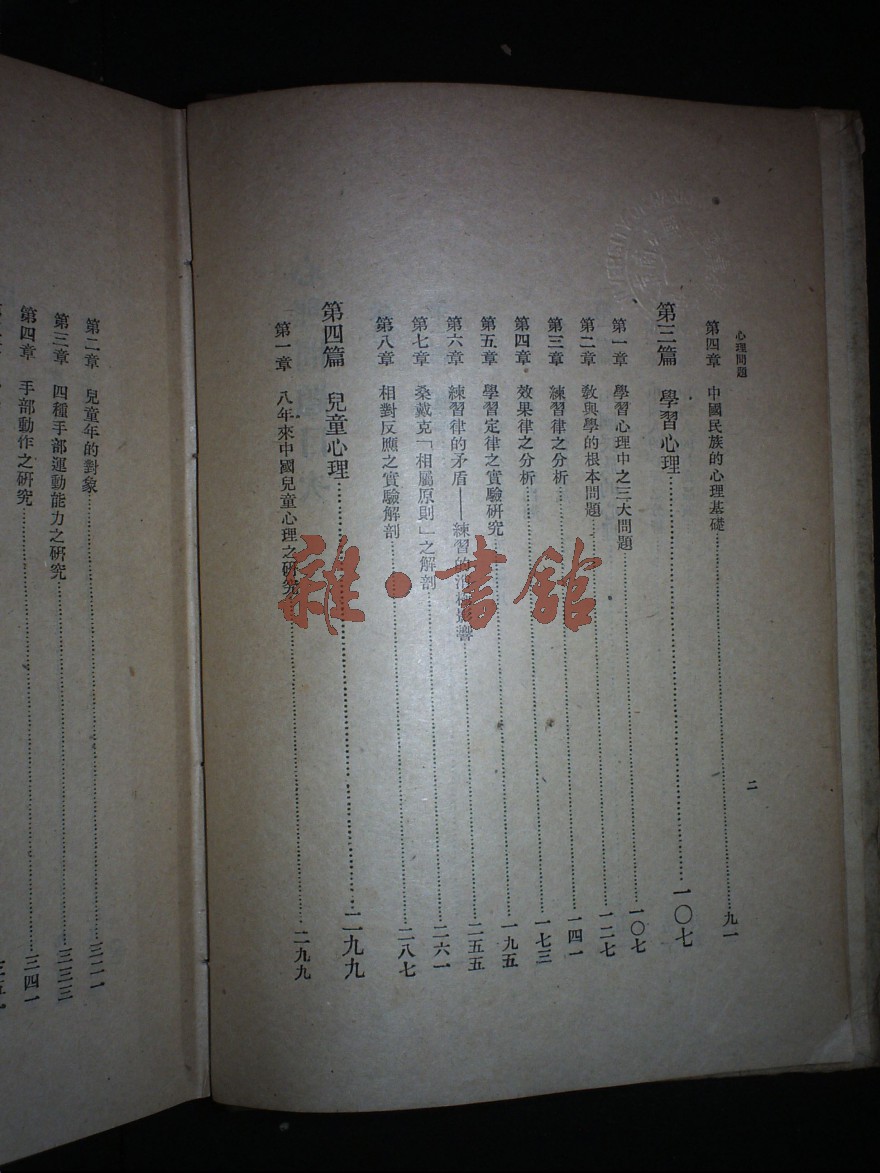 心理問題
第四章 中國民族的心理基礎……九一
第三篇 學習心理……一〇七
第一章 學習心理中之三大問題……一〇七
第二章 教與學的根本問題……一二七
第三章 練習律之分析……一四一
第四章 效果律之分析……一七三
第五章 學習定律之實驗研究……一九五
第六章 練習律的矛盾——練習的消極影響……二五五
第七章 桑戴克「相屬原則」之解剖……二六一
第八章 相對反應之實驗解剖……二八七
第四篇 兒童心理……二九九
第一章 八年來中國兒童心理之研究……二九九
二
第二章 兒童年的對象……三二一
第三章 四種手部運動能力之研究……三三三
第四章 手部動作之研究……三四一
雜·書館